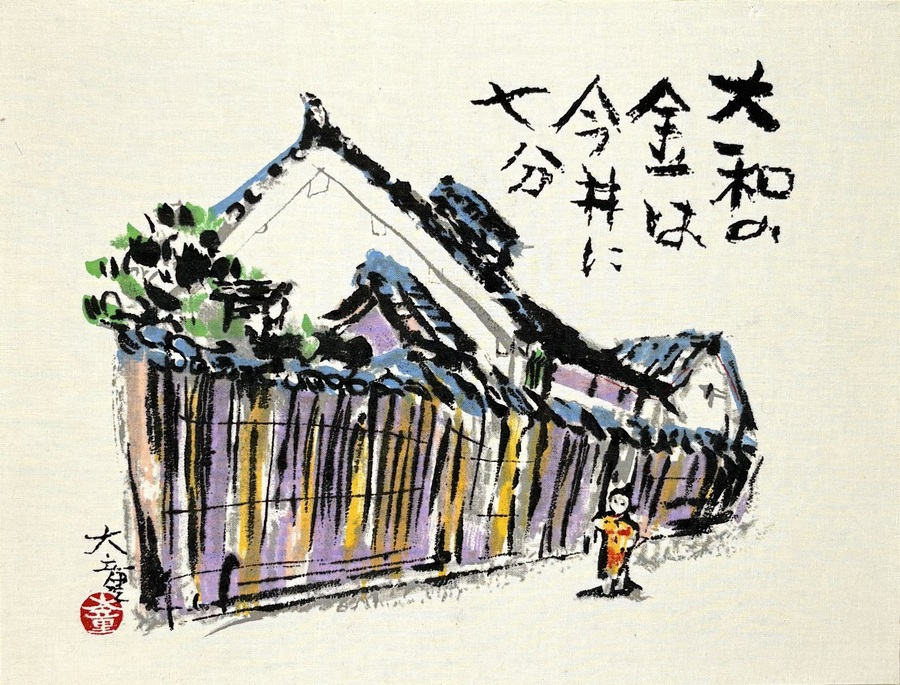 大和の
金は
今井に
七分
大童
大童